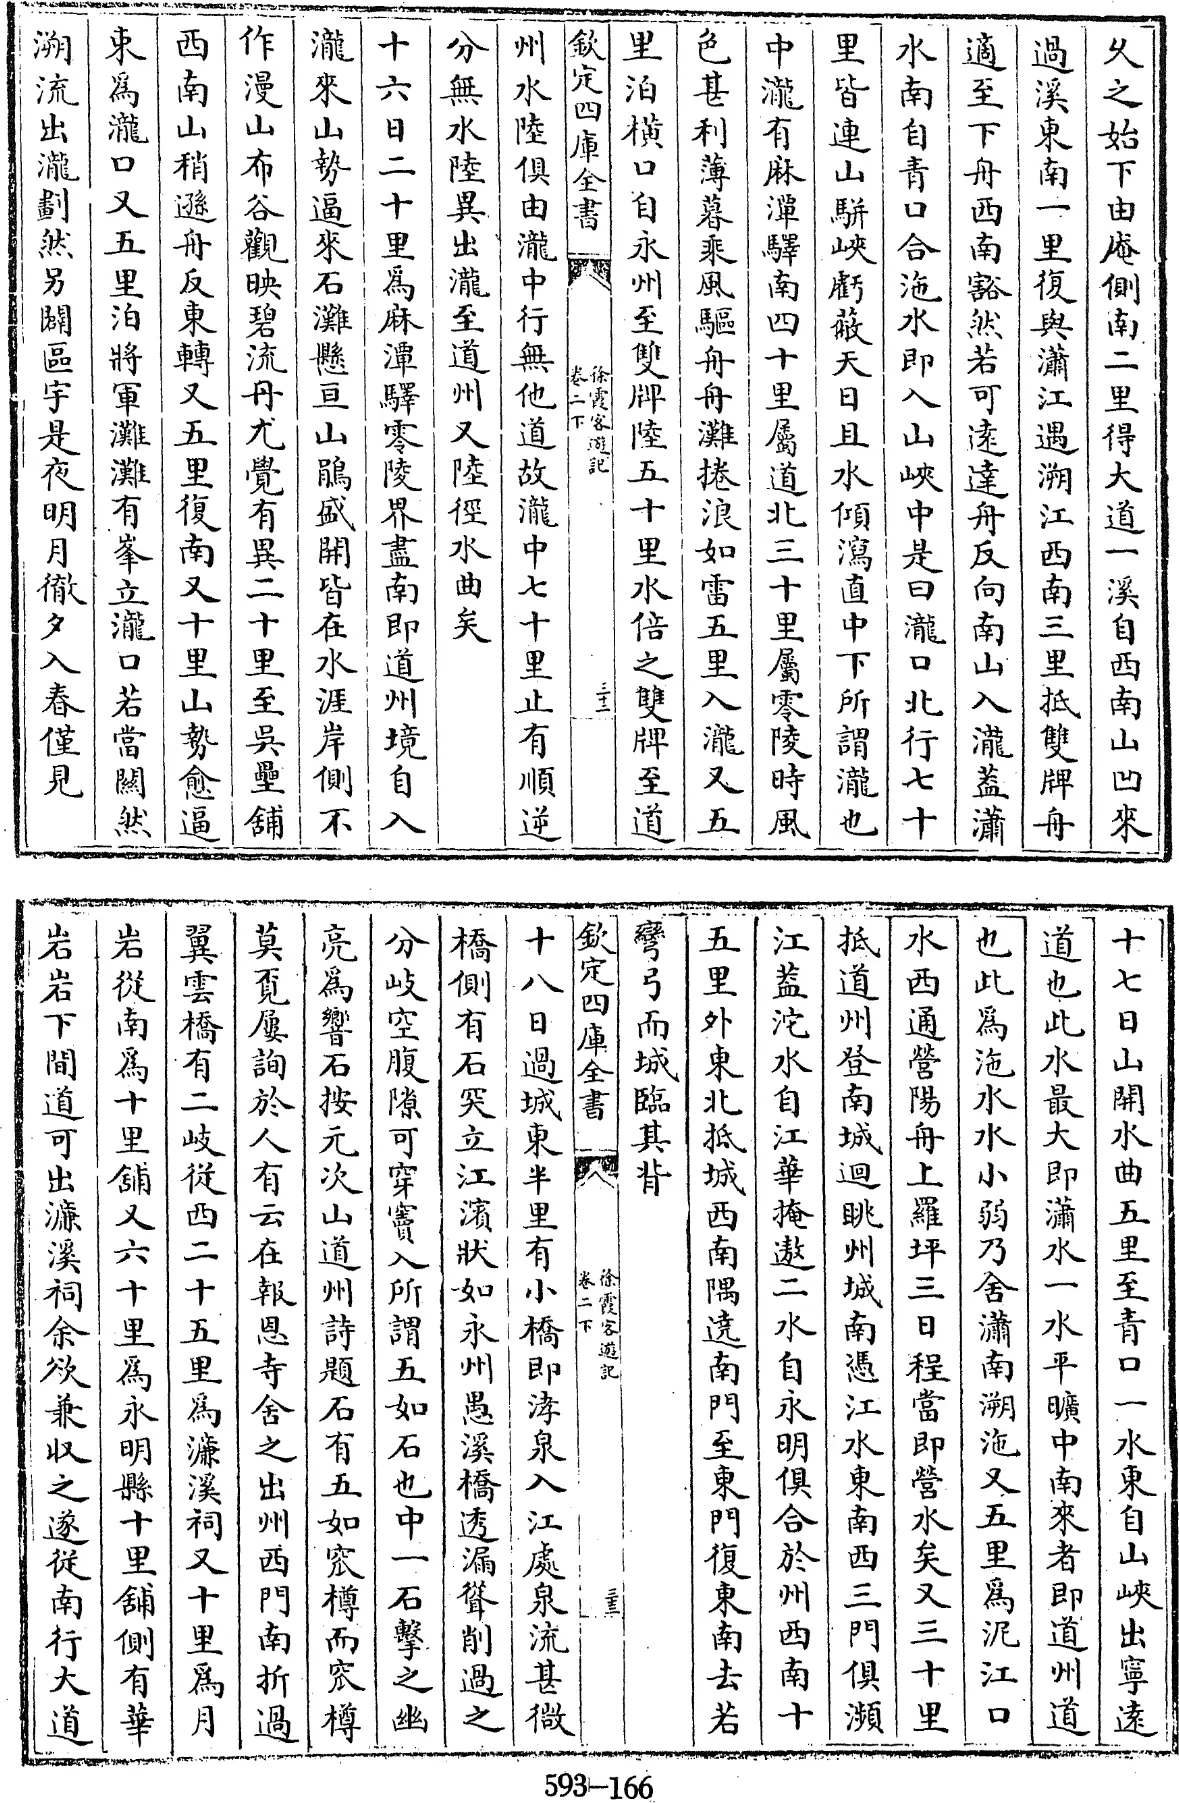 乆之始下由庵側南二里得大道一溪自西南山凹來
過溪東南一里復與瀟江遇溯江西南三里抵雙牌舟
適至下舟西南豁然若可遠達舟反向南山入瀧葢瀟
水南自青口合沲水即入山峽中是曰瀧口北行七十
里皆連山騈峽虧蔽天日且水傾瀉直中下所謂瀧也
中瀧有麻潭驛南四十里屬道北三十里屬零陵時風
色甚利薄暮乘風驅舟舟灘捲浪如雷五里入瀧又五
里泊横口自永州至雙牌陸五十里水倍之雙牌至道
欽定四庫全書
徐霞客遊記
卷二下
三十二
州水陸俱由瀧中行無他道故瀧中七十里止有順逆
分無水陸異出瀧至道州又陸徑水曲矣
十六日二十里爲麻潭驛零陵界盡南即道州境自入
瀧來山勢逼來石灘懸亘山鵑盛開皆在水涯岸側不
作漫山布谷觀映碧流丹尤覺有異二十里至吳壘舖
西南山稍遜舟反東轉又五里復南又十里山勢愈逼
東爲瀧口又五里泊將軍灘灘有峯立瀧口若當闗然
溯流出瀧劃然另闢區宇是夜明月徹夕入春僅見
十七日山開水曲五里至青口一水東自山峽出寧遠
道也此水最大即瀟水一水平曠中南來者即道州道
也此爲沲水水小弱乃舍瀟南溯沲又五里爲泥江口
水西通營陽舟上羅坪三日程當即營水矣又三十里
抵道州登南城迴眺州城南憑江水東南西三門俱瀕
江葢沱水自江華掩遨二水自永明俱合於州西南十
五里外東北抵城西南隅遶南門至東門復東南去若
彎弓而城臨其背
欽定四庫全書
徐霞客遊記
卷二下
三十三
十八日過城東半里有小橋即涍泉入江處泉流甚微
橋側有石突立江濱狀如永州愚溪橋透漏聳削過之
分岐空腹隙可穿竇入所謂五如石也中一石擊之幽
亮爲響石按元次山道州詩題石有五如窊樽而窊樽
莫覔屢詢於人有云在報恩寺舍之出州西門南折過
翼雲橋有二岐從西二十五里爲濂溪祠又十里爲月
岩從南爲十里舖又六十里爲永明縣十里舖側有華
岩岩下間道可出濂溪祠余欲兼収之遂從南行大道
593-166